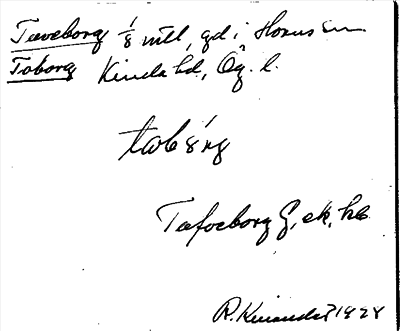 Taveborg 1/8 mtl, gd i Horns sn
Taborg Kinda hd, Ög. l.
Tafoeborg G, ek, hb
R. Kinander 1928